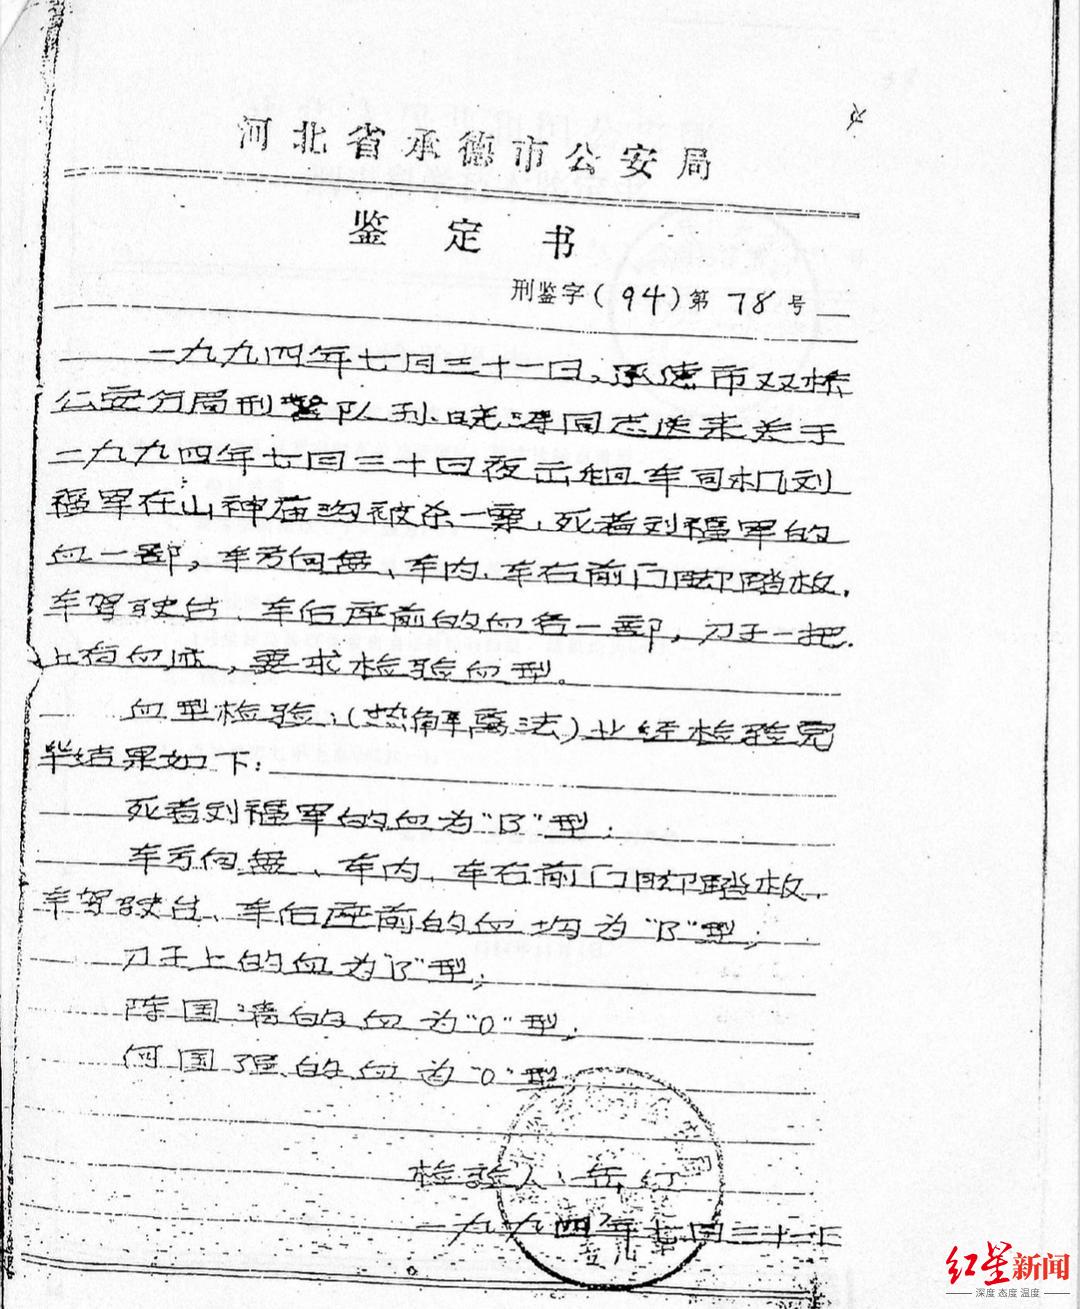 河北省承德市公安局
鉴定书
刑鉴字(94)第78号
一九九四年七月三十一日，承德市双桥
公安分局刑警队孙晓涛同志送来关于
一九九四年七月三十日夜出租车司机刘
福军在山神庙沟被杀一案，死者刘福军的
血一部，车方向盘、车内、车右前门脚踏板、
车驾驶台、车后座前的血各一部，刀子一把，
上有血迹，要求检验血型。
血型检验：(热解离法)业经检验完
毕结果如下：
死者刘福军的血为"B"型；
车方向盘、车内、车右前门脚踏板、
车驾驶台、车后座前的血均为"B"型；
刀子上的血为"B"型；
陈国清的血为"O"型；
何国强的血为"O"型；
检验人：岳红
一九九四年七月三十一日
红星新闻
深度 态度 温度